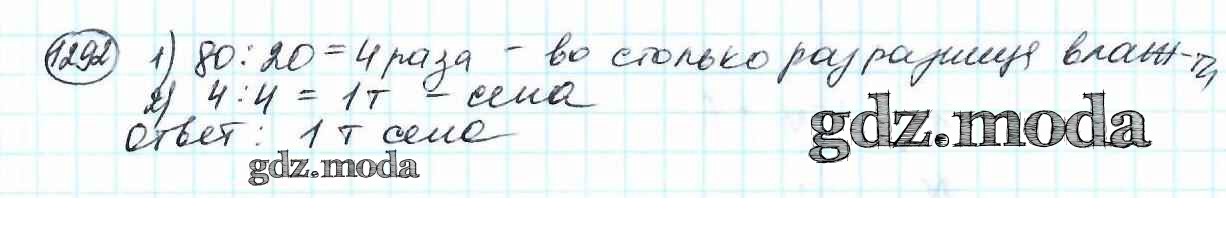 1292 1) 80:20=4 раза - во столько раз разница влаж-ти
2) 4:4 = 1т - сена
ответ: 1 т сена
gdz.moda
gdz.moda